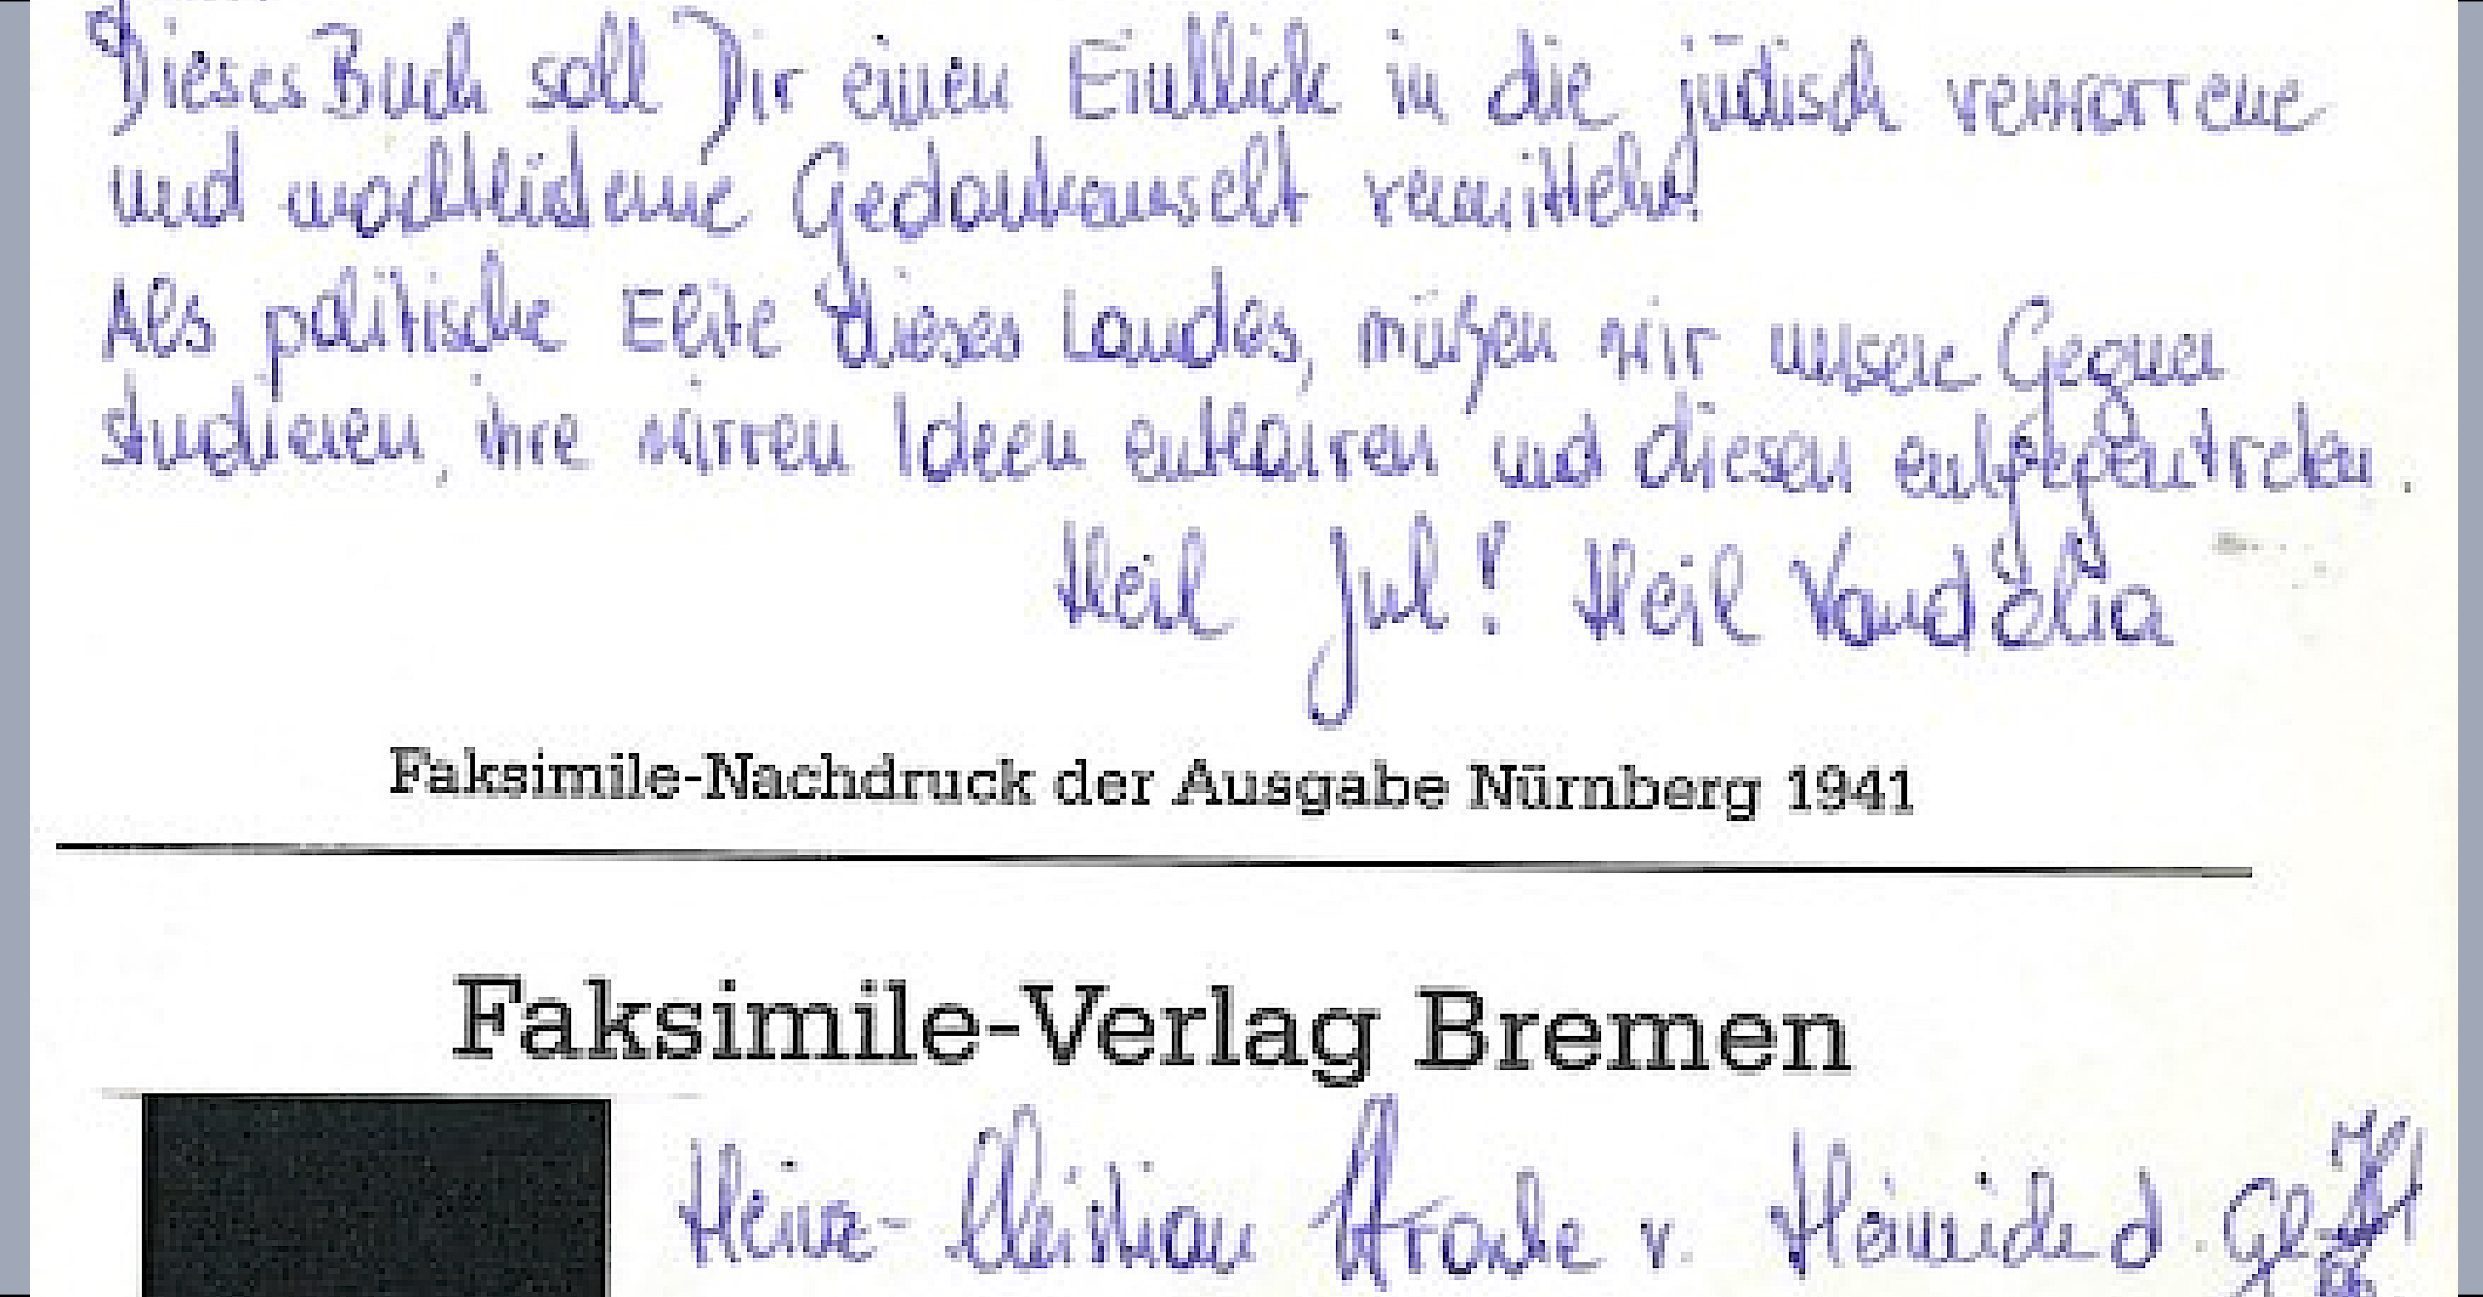 Dieses Buch soll Dir einen Einblick in die jüdisch verworrene
und machtbißene Gedankenwelt vermitteln!
Als politische Elite dieses Landes, müßen wir unsere Gegner
studieren, ihre wirren Ideen entlarven und diesen entgegentreten.
Heil Jul! Heil Vandalia
Faksimile-Nachdruck der Ausgabe Nürnberg 1941
Faksimile-Verlag Bremen
Heinz-Christian Strache v. Heinrich d. Gl.